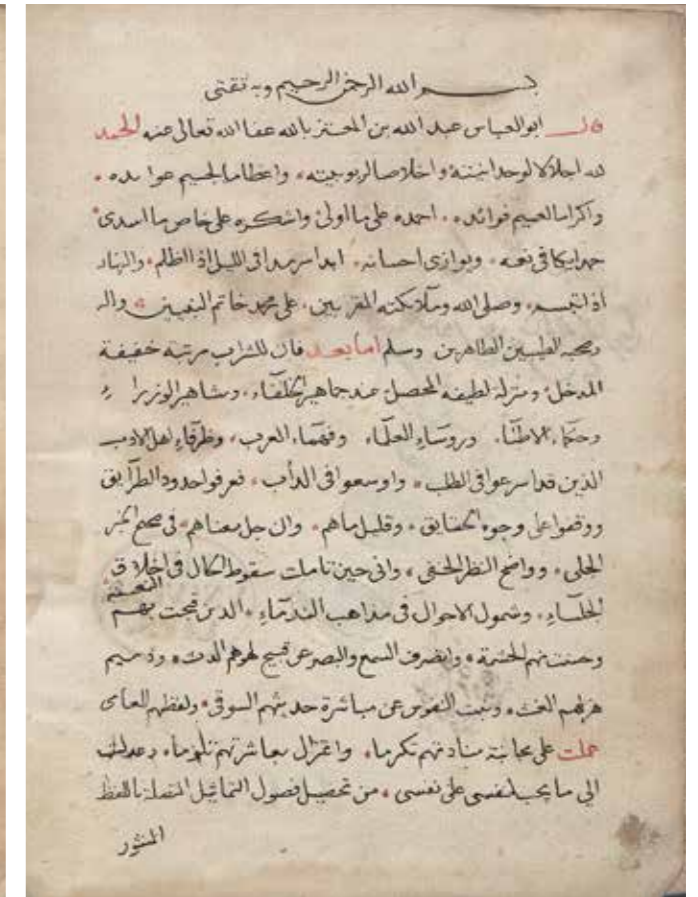 بسم الله الرحمن الرحيم وبه ثقتي
قال ابو العباس عبد الله بن المعتز بالله عفا الله تعالى عنه الحمد
لله اجلالا لوحدانيته واخلاصا لربوبيته واعظاما لجسيم عوايده
واكراما لعميم فوائده احمده على ما اولى واشكره على خاص ما اسدى
حمدا يكافي نعمه ويوازي احسانه ابدا سرمدا في الليل اذا اظلم والنهار
اذا ابتسم وصلى الله وملائكته المقربين على محمد خاتم النبيين واله
وصحبه الطيبين الطاهرين وسلم اما بعد فان للشراب مرتبة خفيفة
المدخل ومنزلة لطيفة المحصل عند جماهير الخلفاء ومشاهير الوزراء
وحكماء الاطباء وروساء العلماء وفهماء العرب وظرفاء اهل الادب
الذين قد اسرعوا في الطلب واوسعوا في الدأب فعرفوا حدود الطرايق
ووقفوا على وجوه الحقايق وقليل ما هم وان جل معناهم في صحيح الخبر
الجلي وواضح النظر الخفي واني حين تاملت سقوط الكمال في اخلاق
الجلساء وشمول الاحوال في مذاهب الندماء الذين قبحت بهم النعمة
وحسنت منهم الحشمة وانصرف السمع والبصر عن قبيح لهوهم الرث وذميم
هزلهم الغث ونبت النفوس عن مباشرة حديثهم السوقي ولفظهم العامي
عملت على مجانبة منادمتهم تكرما واعتزال معاشرتهم وعدلت
الى ما يجب لنفسي على نفسي من تحصيل فصول التماثيل باللفظ
المنثور